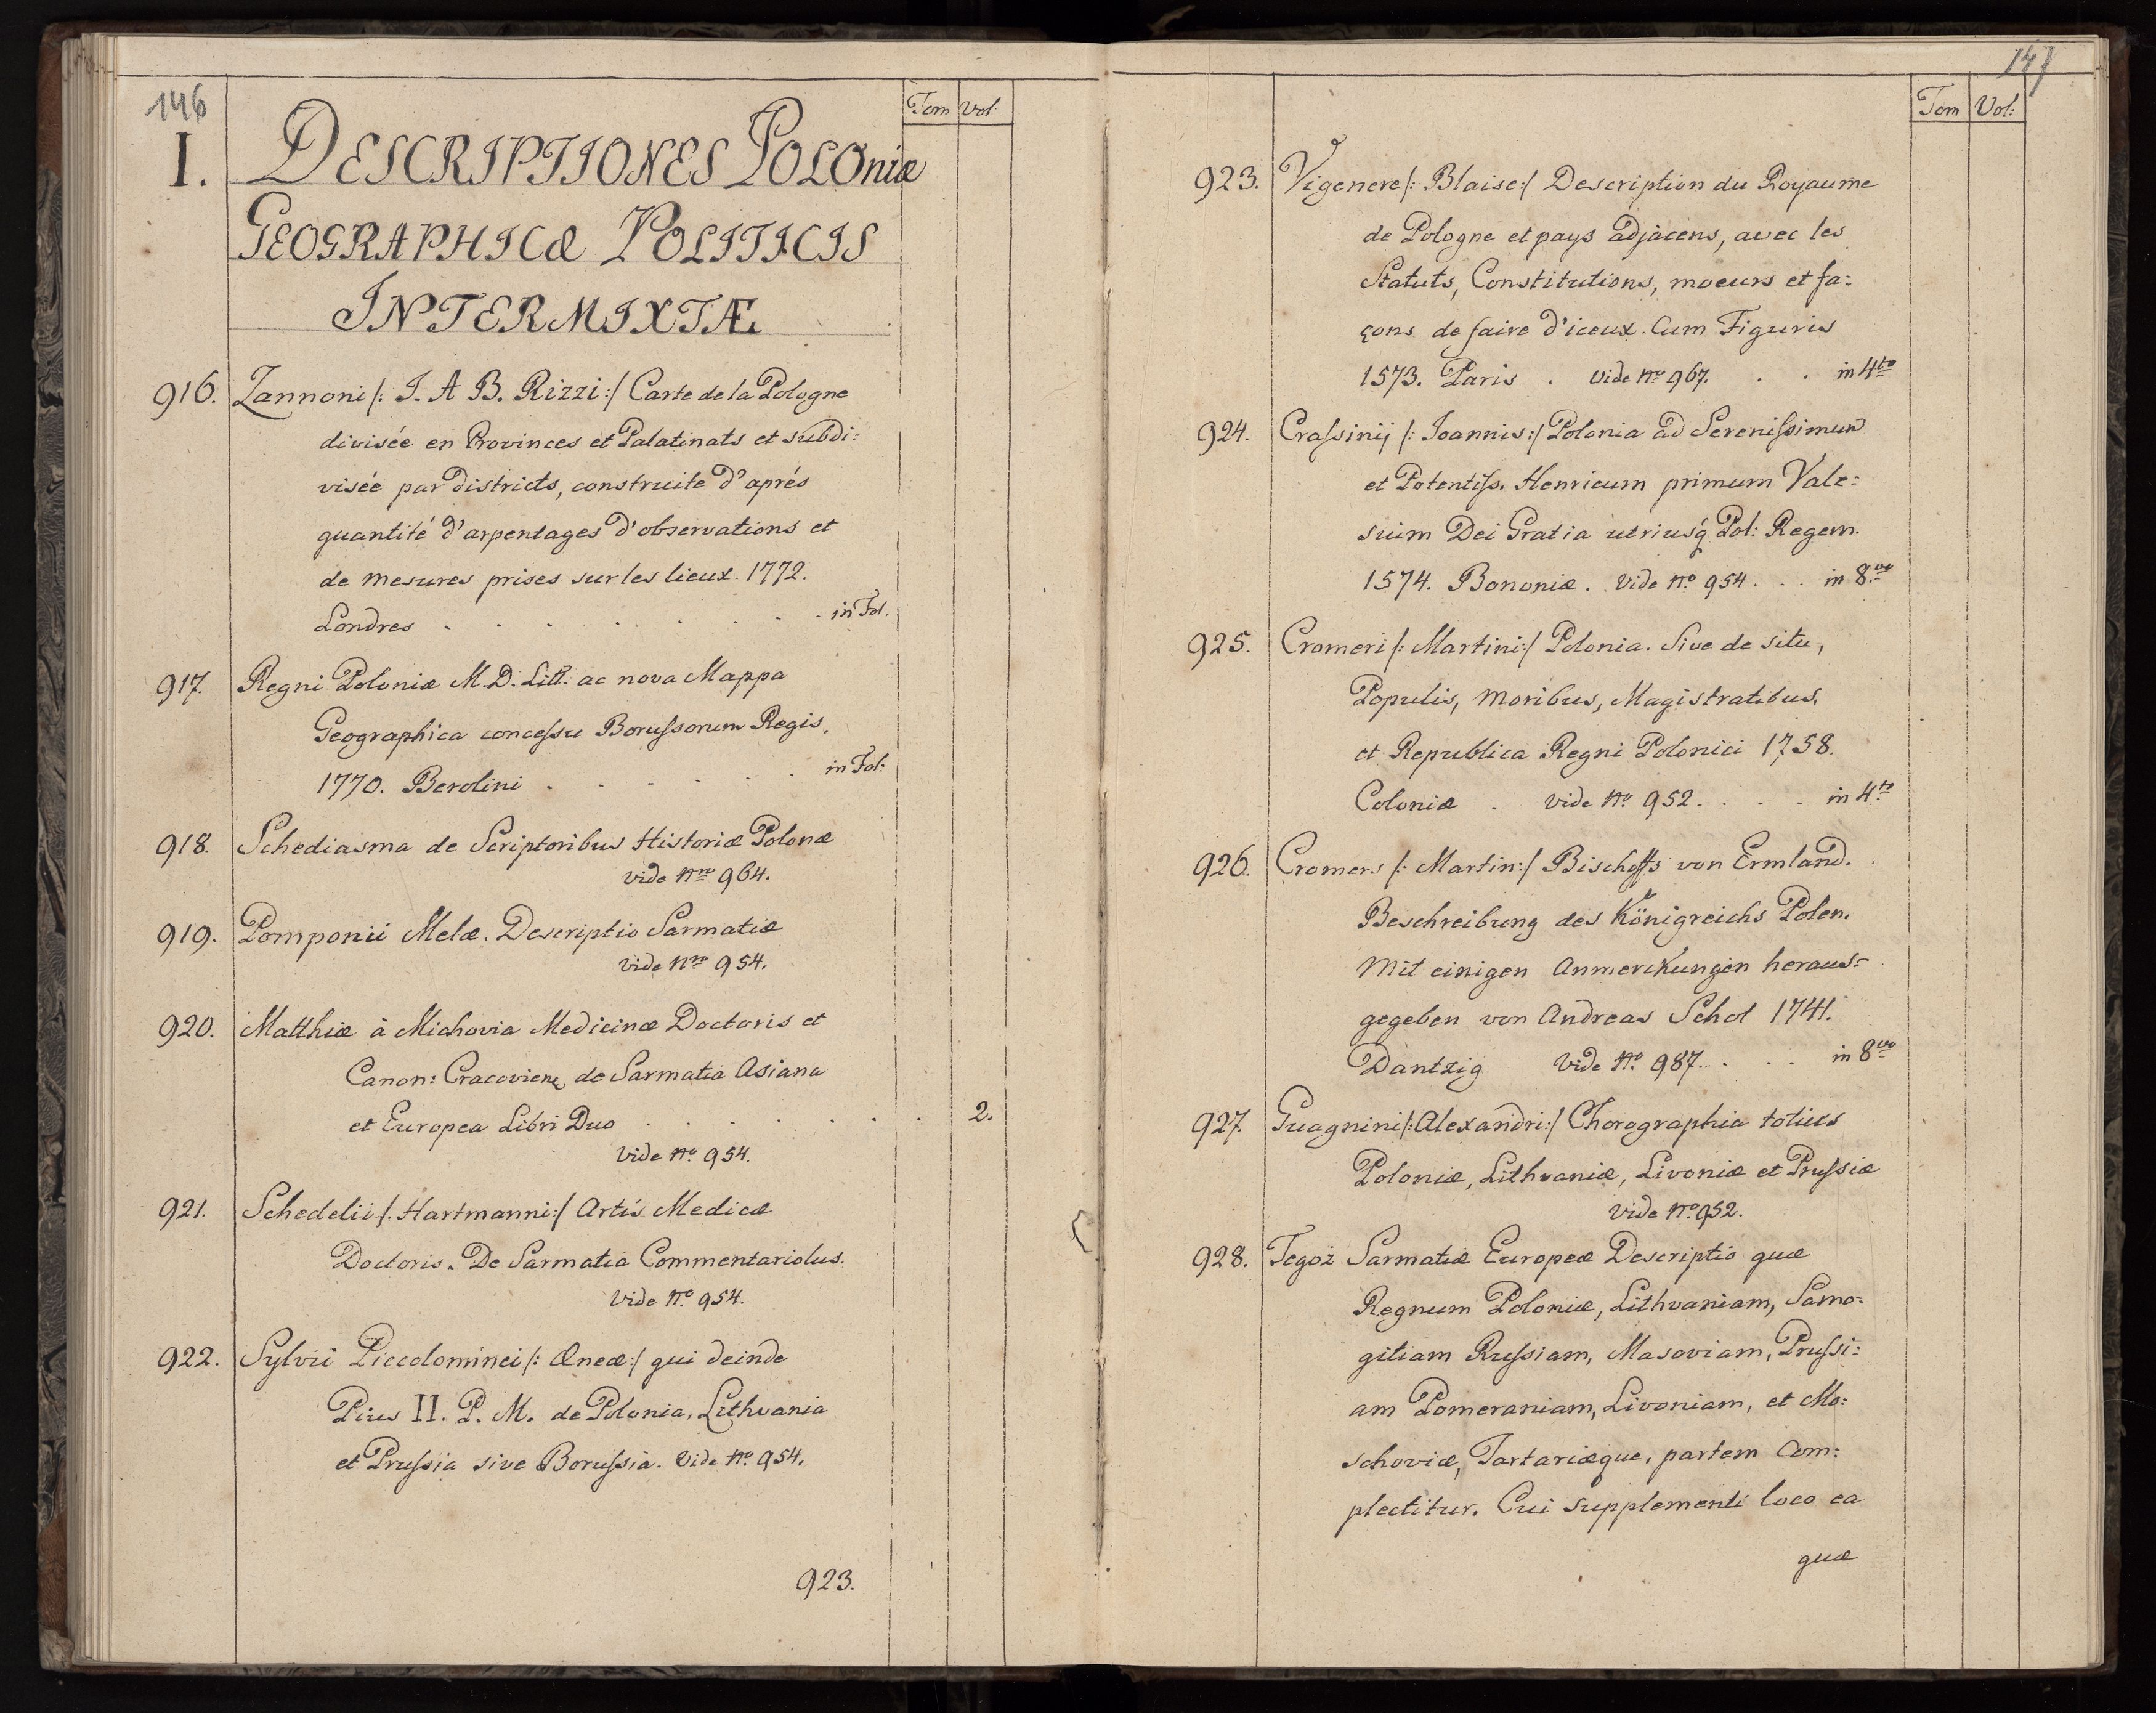 146
Tom Vol
I. DESCRIPTIONES POLOniæ
GEOGRAPHICæ POLITICIS
INTERMIXTÆ.
916. Zannoni /: I. A B. Rizzi :/ Carte de la Pologne
divisée en Provinces et Palatinats et subdi:
visée par districts, construite d'aprés
quantité d'arpentages d'observations et
de mesures prises sur les lieux. 1772.
Londres . . . . . . . . in Fol.
917. Regni Poloniæ M. D. Litt: ac nova Mappa
Geographica concessu Borussorum Regis.
1770. Berolini . . . . . . in Fol:
918. Schediasma de Scriptoribus Historiæ Polonæ
vide Nro 964.
919. Pomponii Melæ. Descriptio Sarmatiæ
vide Nro 954.
920. Matthiæ à Michovia Medicinæ Doctoris et
Canon: Cracovien, de Sarmatia Asiana
et Europea Libri Duo . . . . . . . 2.
vide No. 954.
921. Schedelii /: Hartmanni :/ Artis Medicæ
Doctoris. De Sarmatia Commentariolus.
vide No. 954.
922. Sylvii Piccolominei /: Æneæ :/ qui deinde
Pius II. P. M. de Polonia, Lithvania
et Prussia sive Borussia. vide No. 954.
923.
147
Tom Vol:
923. Vigenere /: Blaise :/ Description du Royaume
de Pologne et pays adjacens, avec les
Statuts, Constitutions, moeurs et fa:
çons de faire d'iceux. Cum Figuris
1573. Paris . vide No 967. . . in 4to
924. Crassinij /: Joannis :/ Polonia ad Serenissimum
et Potentiss. Henricum primum Vale:
sium Dei Gratia utriusq́ Pol: Regem.
1574. Bononiæ. vide No 954 . . . in 8.vo
925. Cromeri /: Martini :/ Polonia. Sive de situ,
Populis, moribus, Magistratibus.
et Republica Regni Polonici 1758.
Coloniæ . vide No 952 . . . . in 4.to
926. Cromers /: Martin :/ Bischoffs von Ermland.
Beschreibung des Königreichs Polen.
Mit einigen Anmerckungen heraus=
gegeben von Andreas Schot 1741.
Dantzig vide No. 987. . . . in 8vo
927. Guagnini /: Alexandri :/ Chorographia totius
Poloniæ, Lithvaniæ, Livoniæ et Prussiæ
vide No. 952.
928. Tegoż Sarmatiæ Europeæ Descriptio quæ
Regnum Poloniæ, Lithvaniam, Samo=
gitiam Russiam, Masoviam, Prussi:
am Pomeraniam, Livoniam, et Mo:
schoviæ, Tartariæque, partem Com:
plectitur. Cui supplementi loco ea
quæ